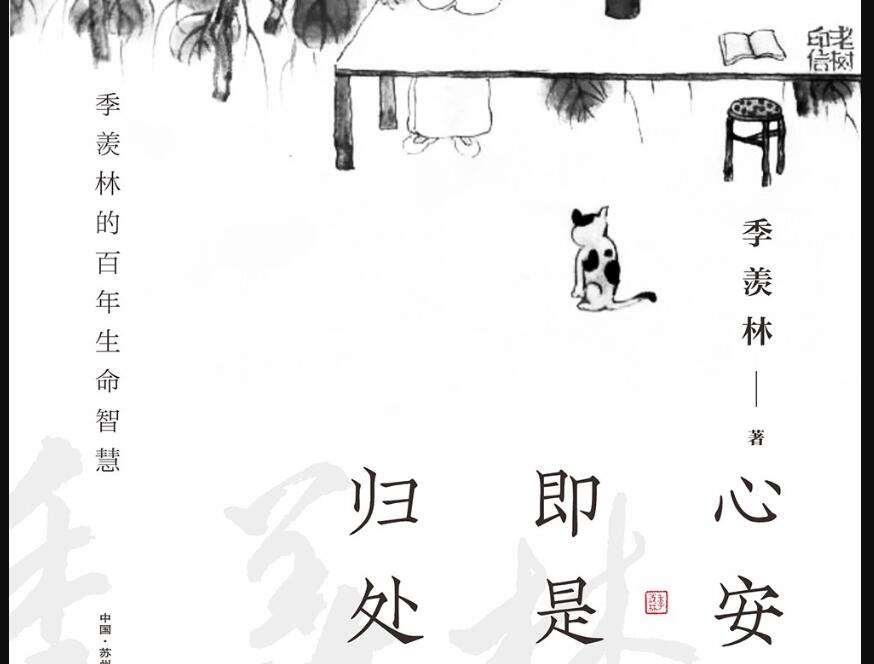 老树
印信
季羡林——著
心安
即是
归处
季羡林的百年生命智慧
中国·苏州
季羡林